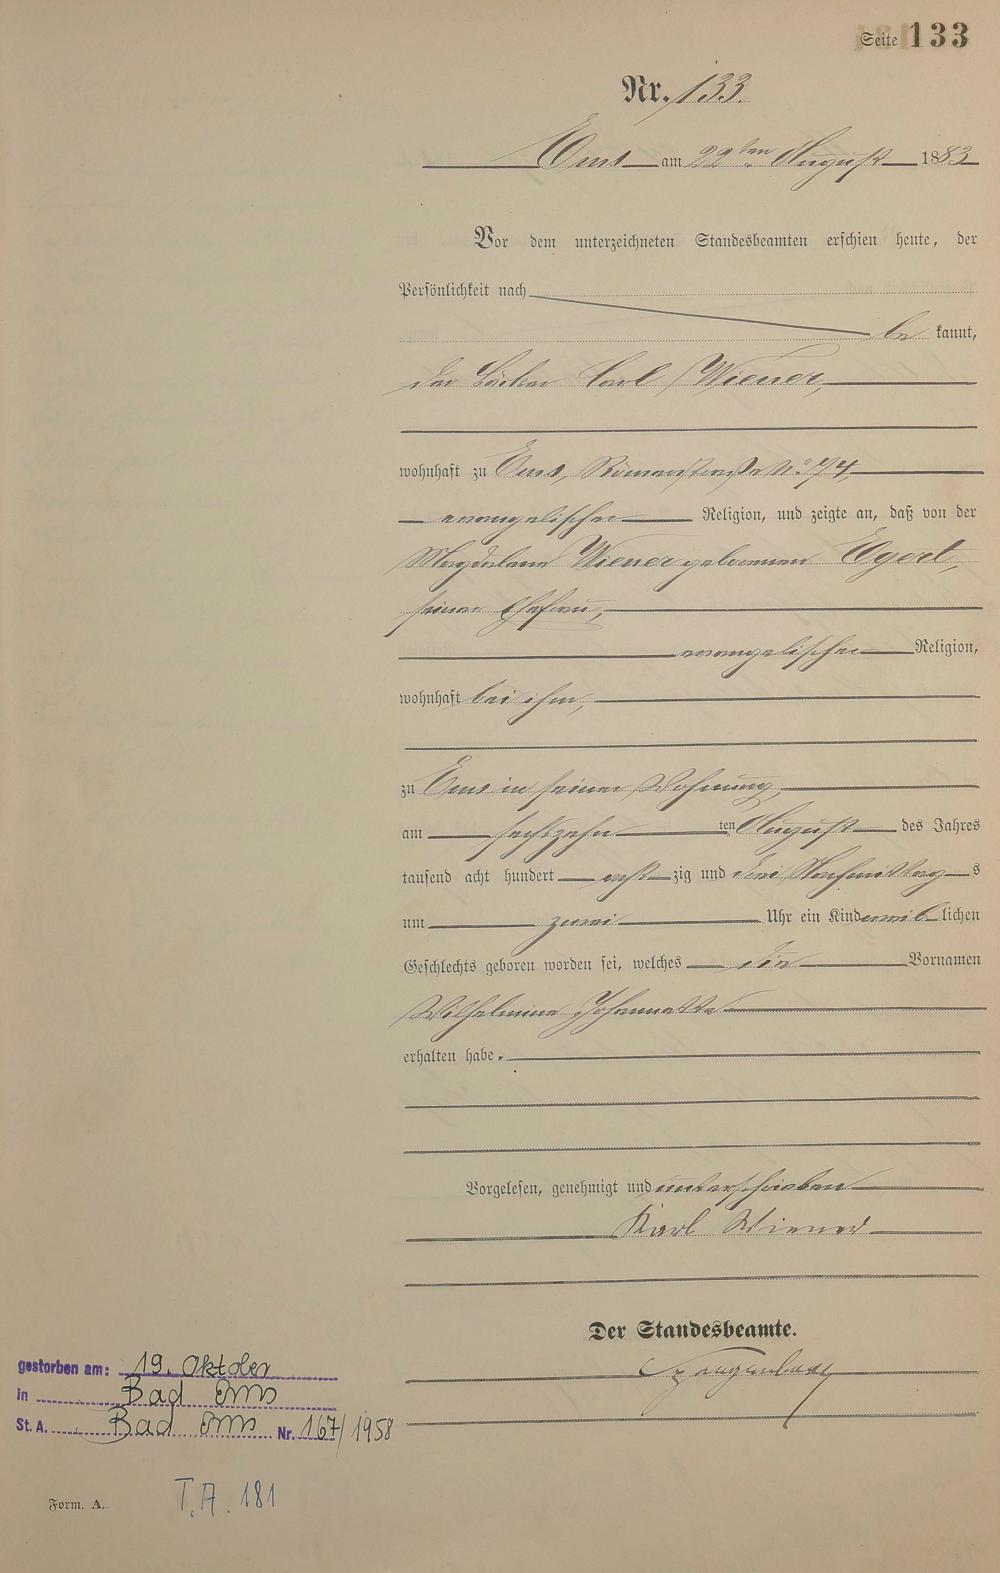 Seite 133
Nr. 133.
Ems am 22ten August 1883
Vor dem unterzeichneten Standesbeamten erschien heute, der
Persönlichkeit nach
be kannt,
der Bäcker Carl Wiener,
wohnhaft zu Ems, Römerstraße No. 74
evangelischer Religion, und zeigte an, daß von der
Magdalena Wiener geborenen Egert,
seiner Ehefrau,
evangelischer Religion,
wohnhaft bei ihm,
zu Ems in seiner Wohnung,
am sechszehn ten August des Jahres
tausend acht hundert acht zig und drei Nachmittag s
um zwei Uhr ein Kind weib lichen
Geschlechts geboren worden sei, welches die Vornamen
Wilhelmine Johannette
erhalten habe.
Vorgelesen, genehmigt und unterschrieben
Karl Wiener
Der Standesbeamte.
gestorben am: 19. Oktober
in Bad Ems
St. A. Bad Ems Nr. 167/1958
Form. A.
T.A. 181